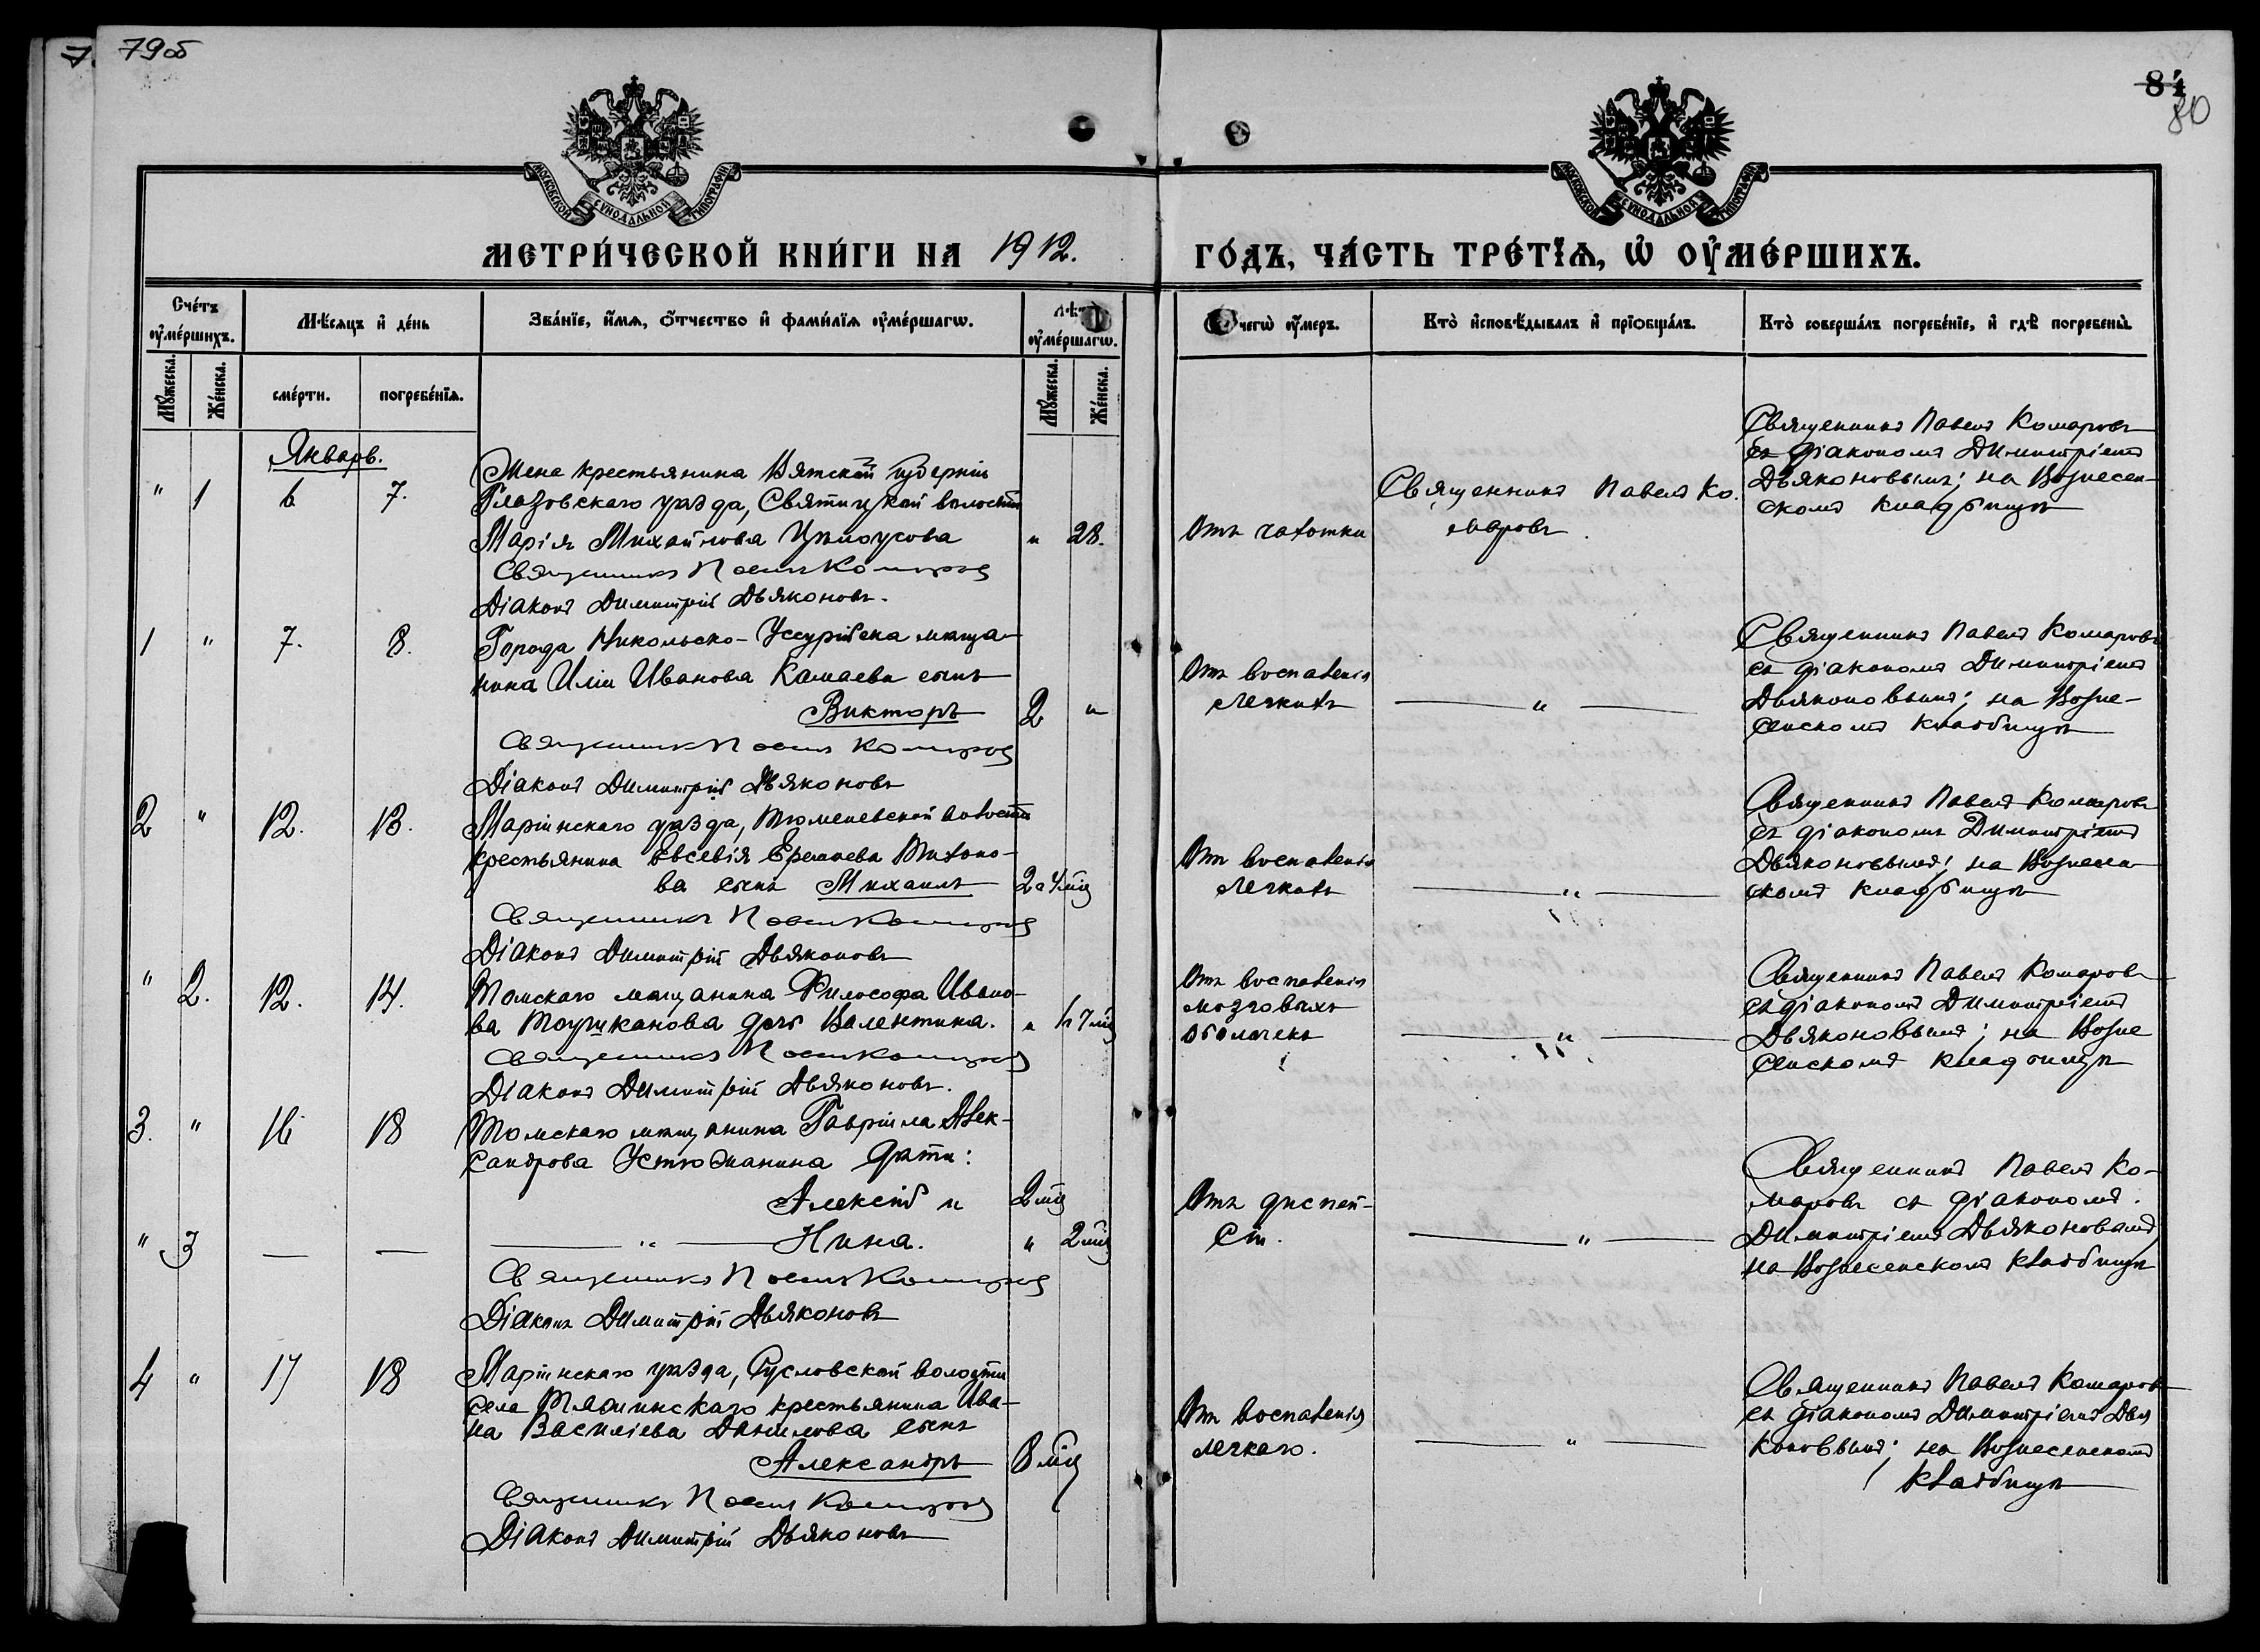 79об
84
80
МОСКОВСКОЙ СѴНОДАЛЬНОЙ ТИПОГРАФІИ
МОСКОВСКОЙ СѴНОДАЛЬНОЙ ТИПОГРАФІИ
МЕТРИ́ЧЕСКОЙ КНИ́ГИ НА 1912.
ГО́ДЪ, ЧА́СТЬ ТРЕ́ТЇѦ, Ѡ҆ ОУ҆МЕ́РШИХЪ.
Сче́тъ оу҆ме́ршихъ.
Мѣ́сѧцъ и҆ де́нь
Зва́нїе, и҆́мѧ, ѻ҆́тчество и҆ фами́лїѧ оу҆ме́ршагѡ.
Лѣ́т
оу҆ме́ршагѡ.
чегѡ̀ оу҆́меръ.
Кто̀ и҆сповѣ́дывалъ и҆ прїѻбща́лъ.
Кто̀ соверша́лъ погребе́нїе, и҆ гдѣ̀ погребены̀.
Мꙋ́жеска.
Же́нска.
сме́рти.
погребе́нїѧ.
Мꙋ́жеска.
Же́нска.
Январь.
" 1 6 7.
Жена крестьянина Вятской губерніи
Глазовскаго уѣзда, Святицкой волости
Марія Михайлова Цѣлоусова " 28.
Священникъ Павелъ Комаровъ
Діаконъ Димитрій Дьяконовъ.
Отъ чахотки
Священникъ Павелъ Ко-
маровъ.
Священникъ Павелъ Комаровъ
съ діакономъ Димитріемъ
Дьяконовымъ; на Вознесен-
скомъ кладбищѣ
1 " 7. 8.
Города Никольско-Уссурійска мѣща-
нина Иліи Иванова Камаева сынъ
Викторъ 2 "
Священникъ Павелъ Комаровъ
Діаконъ Димитрій Дьяконовъ
Отъ воспаленія
легкихъ
"
Священникъ Павелъ Комаровъ
съ діакономъ Димитріемъ
Дьяконовымъ; на Возне-
сенскомъ кладбищѣ
2 " 12. 13.
Маріинскаго уѣзда, Тюменевской волости
крестьянина Евсевія Еремѣева Тихоно-
ва сынъ Михаилъ 2 4 мѣс
Священникъ Павелъ Комаровъ
Діаконъ Димитрій Дьяконовъ
Отъ воспаленія
легкихъ
"
Священникъ Павелъ Комаровъ
съ діакономъ Димитріемъ
Дьяконовымъ; на Вознесен-
скомъ кладбищѣ
" 2. 12. 14.
Томскаго мѣщанина Философа Ивано-
ва дочь Валентина. " 1 7 мѣс
Священникъ Павелъ Комаровъ
Діаконъ Димитрій Дьяконовъ.
Отъ воспаленія
мозговыхъ
оболочекъ
"
Священникъ Павелъ Комаровъ
съ діакономъ Димитріемъ
Дьяконовымъ; на Возне
сенскомъ кладбищѣ
3. " 16 18
Томскаго мѣщанина Гавріила Алек-
сандрова Устюжанина дѣти:
Алексій и 2 мѣс
" 3 — —
" Нина. " 2 мѣс
Священникъ Павелъ Комаровъ
Діаконъ Димитрій Дьяконовъ
Отъ диспеп-
сіи.
"
Священникъ Павелъ Ко-
маровъ съ діакономъ
Димитріемъ Дьяконовымъ
на Вознесенскомъ кладбищѣ
4 " 17 18
Маріинскаго уѣзда, Сусловской волости
села Тяжинскаго крестьянина Ива-
на Василіева Данилова сынъ
Александръ 8 мѣс
Священникъ Павелъ Комаровъ
Діаконъ Димитрій Дьяконовъ
Отъ воспаленія
легкаго.
"
Священникъ Павелъ Комаровъ
съ діакономъ Димитріемъ Дья
коновымъ; на Вознесенскомъ
кладбищѣ